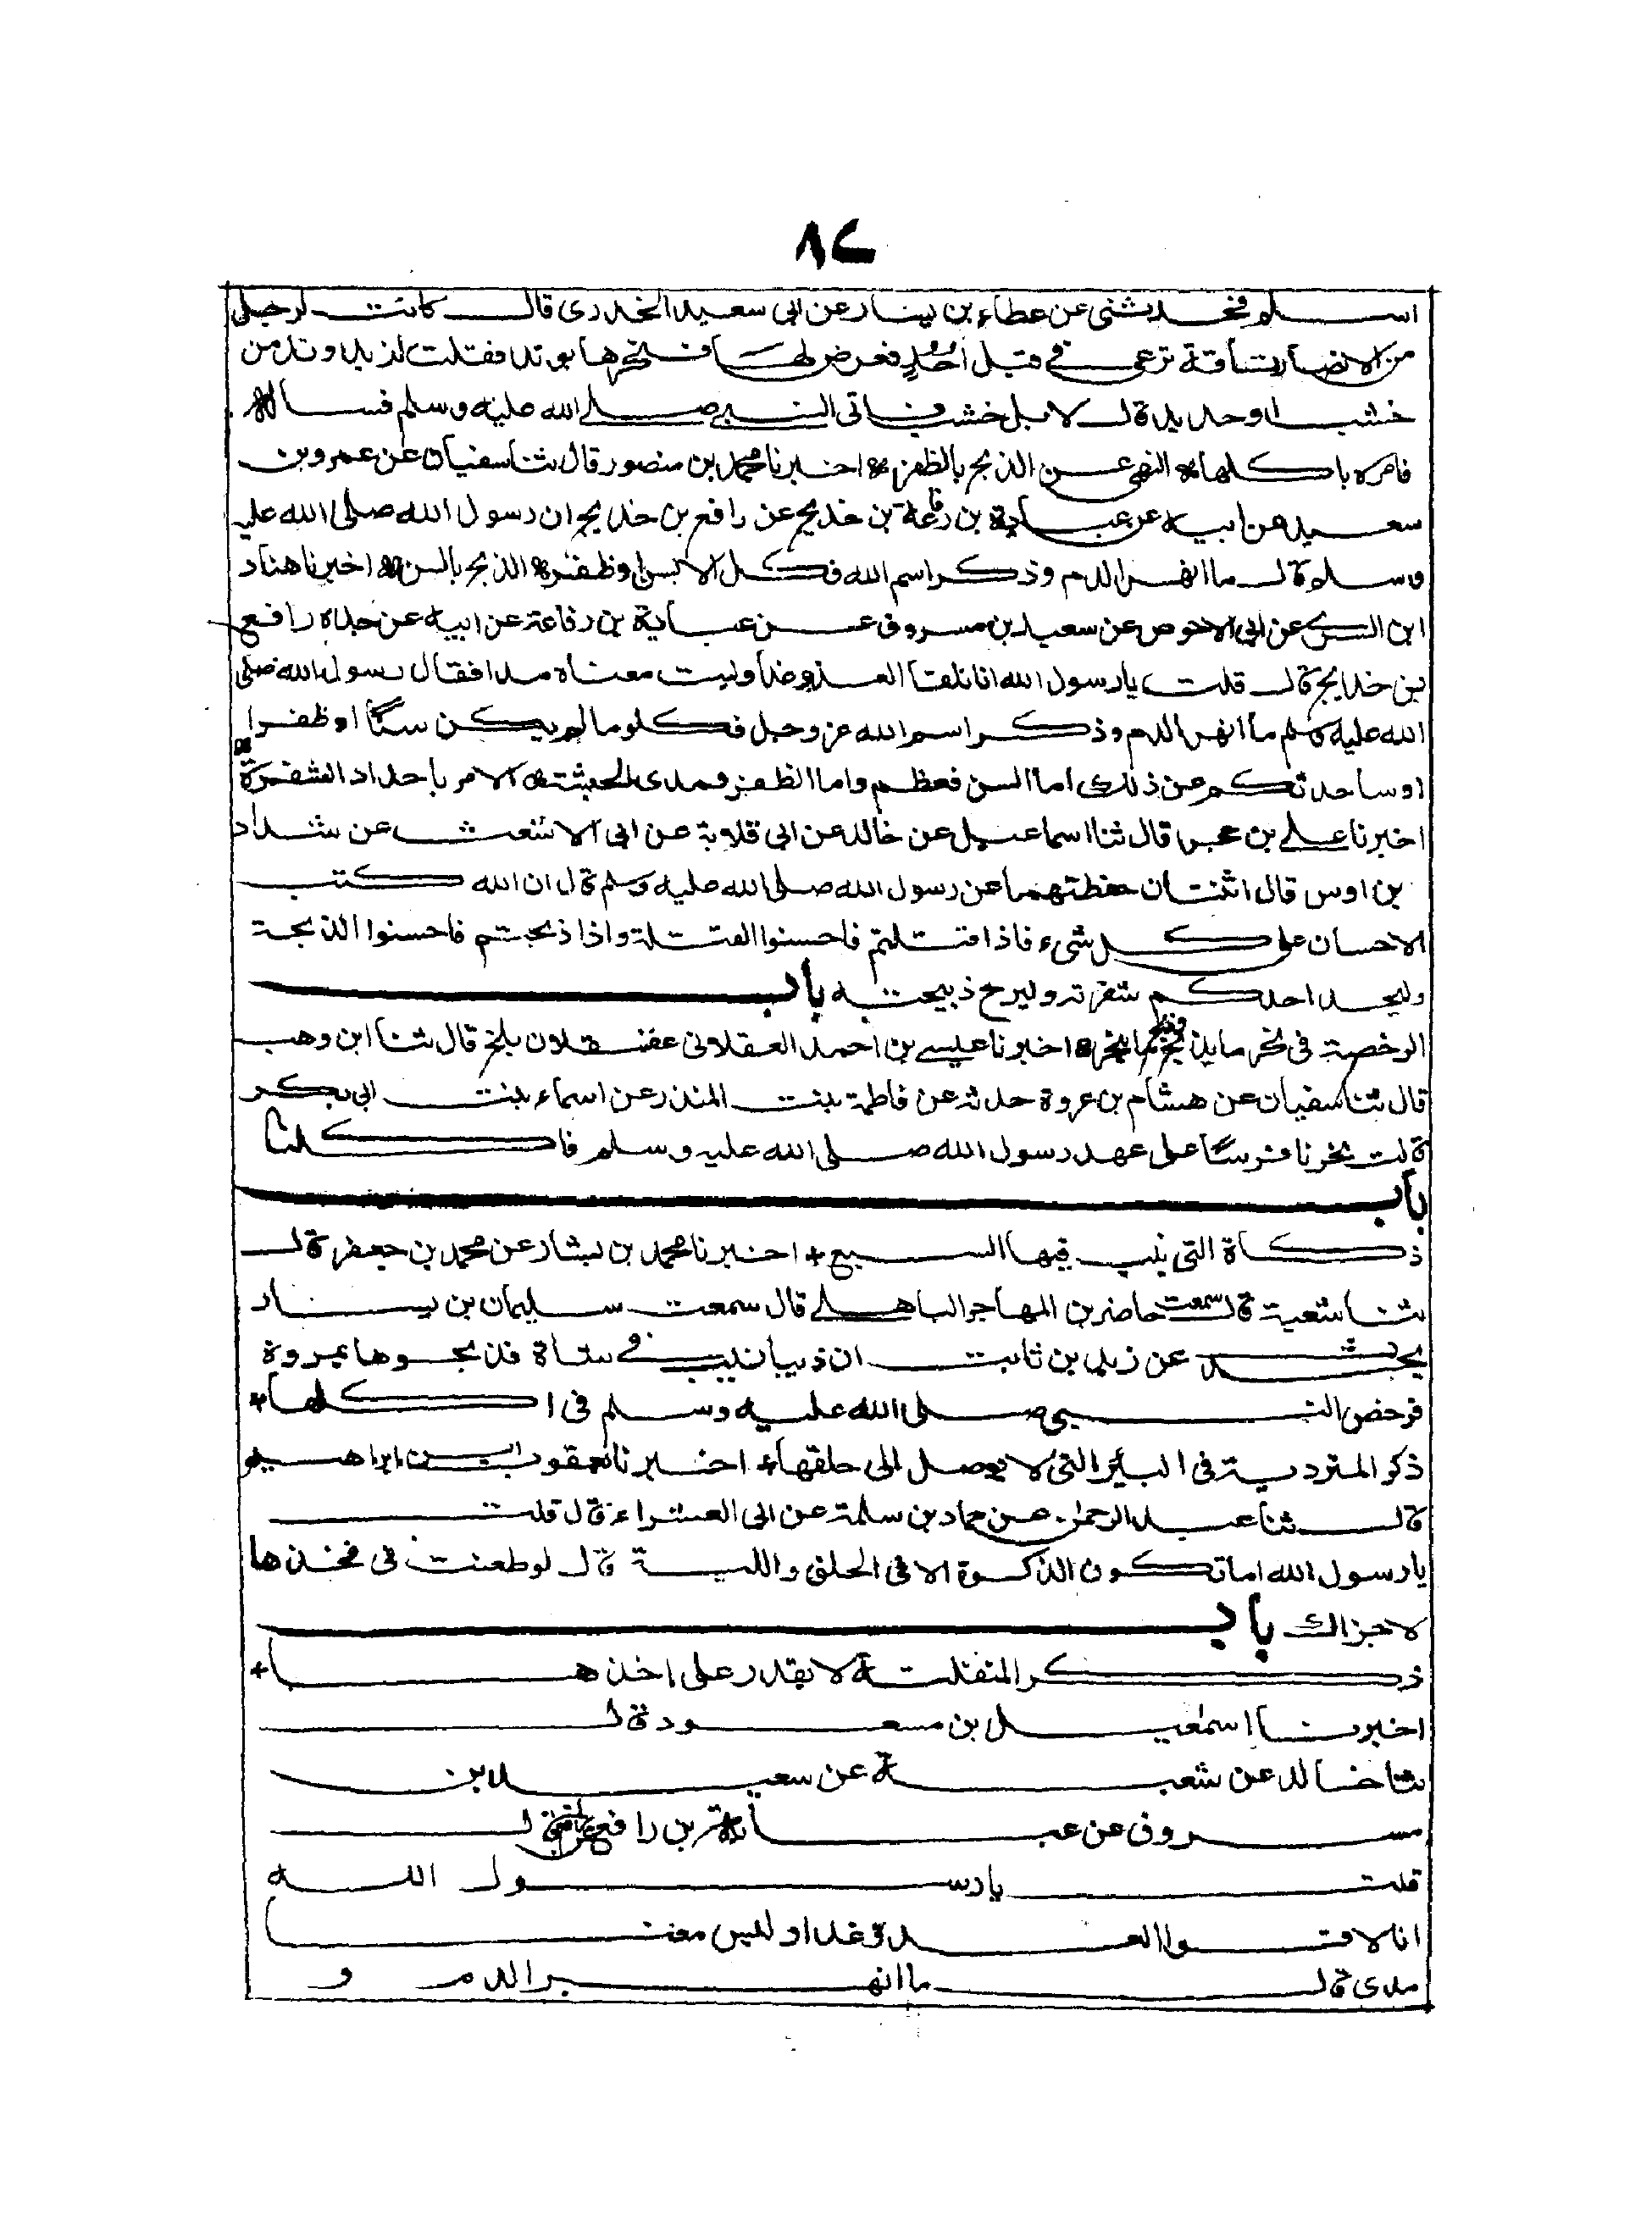 ٨٢
اسلم فحدثنى عن عطاء بن يسار عن ابى سعيد الخدرى قال كانت لرجل
من الانصار ناقة ترعى فى قبل احد فعرض لها فنحرها بوتد فقلت لزيد وتد من
خشب او حديد قال لا بل خشب فاتى النبى صلى الله عليه وسلم فساله
فامره باكلها النهى عن الذبح بالظفر اخبرنا محمد بن منصور قال ثنا سفيان عن عمرو بن
سعيد عن ابيه عن عباية بن رفاعة بن خديج عن رافع بن خديج ان رسول الله صلى الله عليه
وسلم قال ما انهر الدم وذكر اسم الله فكل الا بسن او ظفر الذبح بالسن اخبرنا هناد
ابن السرى عن ابى الاحوص عن سعيد بن مسروق عن عباية بن رفاعة عن ابيه عن جده رافع
بن خديج قال قلت يا رسول الله انا نلقا العدو غدا وليست معناه مدا فقال رسول الله صلى
الله عليه وسلم ما انهر الدم وذكر اسم الله عز وجل فكلو ما لم يكن سنًا او ظفرا
او ساحدثكم عن ذلك اما السن فعظم واما الظفر فمدى الحبشته الامر باحداد الشفرة
اخبرنا على بن حجر قال ثنا اسماعيل عن خالد عن ابى قلابة عن ابى الاشعث عن شداد
بن اوس قال اثنتان حفظتهما عن رسول الله صلى الله عليه وسلم قال ان الله كتب
الاحسان على كل شىء فاذا قتلتم فاحسنوا القتلة واذا ذبحتم فاحسنوا الذبحة
وليحد احدكم شفرته وليرح ذبيحته باب
الرخصة فى نحر ما يذبح وذبح ما ينحر اخبرنا عيسى بن احمد العقلانى عقلان بلخ قال ثنا ابن وهب
قال ثنا سفيان عن هشام بن عروة حدثه عن فاطمة بنت المنذر عن اسماء بنت ابى بكر
قالت نحرنا فرسًا على عهد رسول الله صلى الله عليه وسلم فاكلنا
باب
ذكاة التى نيب فيها السبع + اخبرنا محمد بن بشار عن محمد بن جعفر قال
ثنا شعبة قال سمعت حاضر بن المهاجر الباهلى قال سمعت سليمان بن يسار
يحدث عن زيد بن ثابت ان ذيبا نيب فى شاة فذبحوها بمروة
فرخص النبى صلى الله عليه وسلم فى اكلها +
ذكر المتردية فى البئر التى لا يوصل الى حلقها اخبرنا يعقوب بن ابراهيم
قال ثنا عبد الرحمن عن حماد بن سلمة عن ابى العشراء قال قلت
يا رسول الله اما تكون الذكوة الا فى الحلق واللبة قال لو طعنت فى فخذها
لاجزاك باب
ذكر المنفلتة لا يقدر على اخذها +
اخبرنا اسمعيل بن مسعود قال
ثنا خالد عن شعبة عن سعيد بن
مسروق عن عباية بن رافع عن رافع قال
قلت يا رسول الله
انا لاقوا العدو غدا وليس معنا
مدى قال ما انهر الدم و